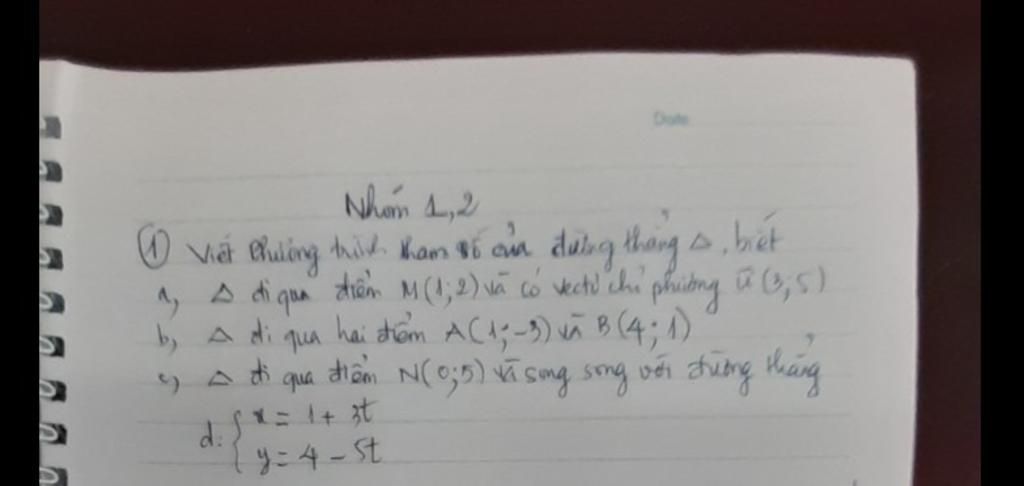 Date
Nhóm 1,2
① Viết phương trình tham số của đường thẳng Δ, biết
a, Δ đi qua điểm M(1;2) và có vectơ chỉ phương u⃗(3;5)
b, Δ đi qua hai điểm A(1;-3) và B(4;1)
c, Δ đi qua điểm N(0;5) và song song với đường thẳng
d: { x = 1 + 3t
y = 4 - 5t